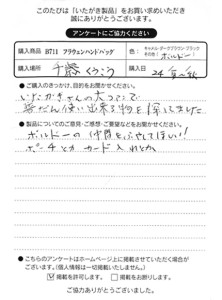 このたびは「いたがき製品」をお買い求めいただき
誠にありがとうございます。
アンケートにご協力ください
購入商品 B711 フラウェンハンドバッグ 色: キャメル・ダークブラウン・ブラック
その他( ボルドー )
購入場所 千歳くうこう 購入日 24
● ご購入のきっかけ、目的をお聞かせください。
いたがきさんの大ファンで
普だん使い出来る物を探してました
● 製品についてのご意見・ご感想・ご要望などをお聞かせください。
ボルドーの仲間をふやしてほしい!
ポーチとかカード入れとか
● こちらのアンケートはホームページ上に掲載させていただく場合が
ございます。(個人情報は一切掲載いたしません。)
掲載を許可します。 掲載をお断りします。
ご協力ありがとうございました。